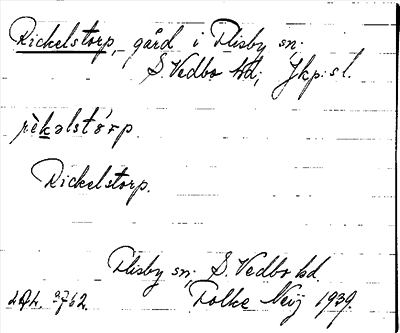 Rickelstorp, gård i Flisby sn;
S. Vedbo hd; Jkp:s l.
rèkəlstórp
Rickelstorp.
Flisby sn; S. Vedbo hd.
Folke Neij 1939.